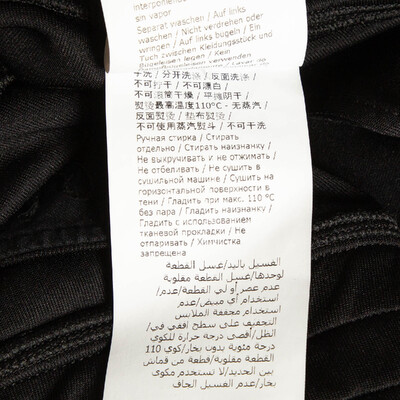 sin vapor
Separat waschen / Auf links
waschen / Nicht verdrehen oder
wringen / Auf links bügeln / Ein
Tuch zwischen Kleidungsstück und
Bügeleisen legen / Kein
手洗 / 分开洗涤 / 反面洗涤 /
不可拧干 / 不可漂白 /
不可滚筒干燥 / 平摊阴干 /
熨烫最高温度110°C - 无蒸汽 /
反面熨烫 / 垫布熨烫 /
不可使用蒸汽熨斗 / 不可干洗
Ручная стирка / Стирать
отдельно / Стирать наизнанку /
Не выкручивать и не отжимать /
Не отбеливать / Не сушить в
сушильной машине / Сушить на
горизонтальной поверхности в
тени / Гладить при макс. 110 °C
без пара / Гладить наизнанку /
Гладить с использованием
тканевой прокладки / Не
отпаривать / Химчистка
запрещена
الغسيل باليد/غسل القطعة
لوحدها/غسل القطعة مقلوبة
/عدم عصر أو لي القطعة/عدم
استخدام أي مبيض/عدم
استخدام مجففة الملابس
/التجفيف على سطح أفقي في
الظل/أقصى درجة حرارة للكوي
110 درجة مئوية بدون بخار/كوي
القطعة مقلوبة/قطعة من قماش
بين الحديد/لا تستخدم مكوى
بخار/عدم الغسيل الجاف